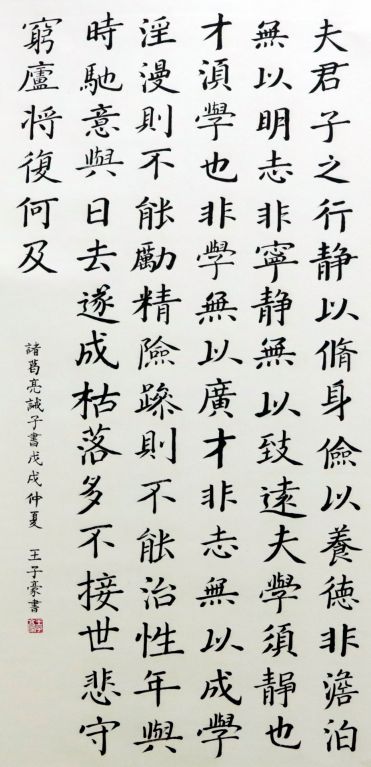 夫君子之行静以脩身儉以養德非澹泊
無以明志非寧静無以致遠夫學須靜也
才湏學也非學無以廣才非志無以成學
淫漫則不能勵精險躁則不能治性年與
時馳意與日去遂成枯落多不接世悲守
窮廬将復何及
諸葛亮誡子書戊戌仲夏 王子豪書